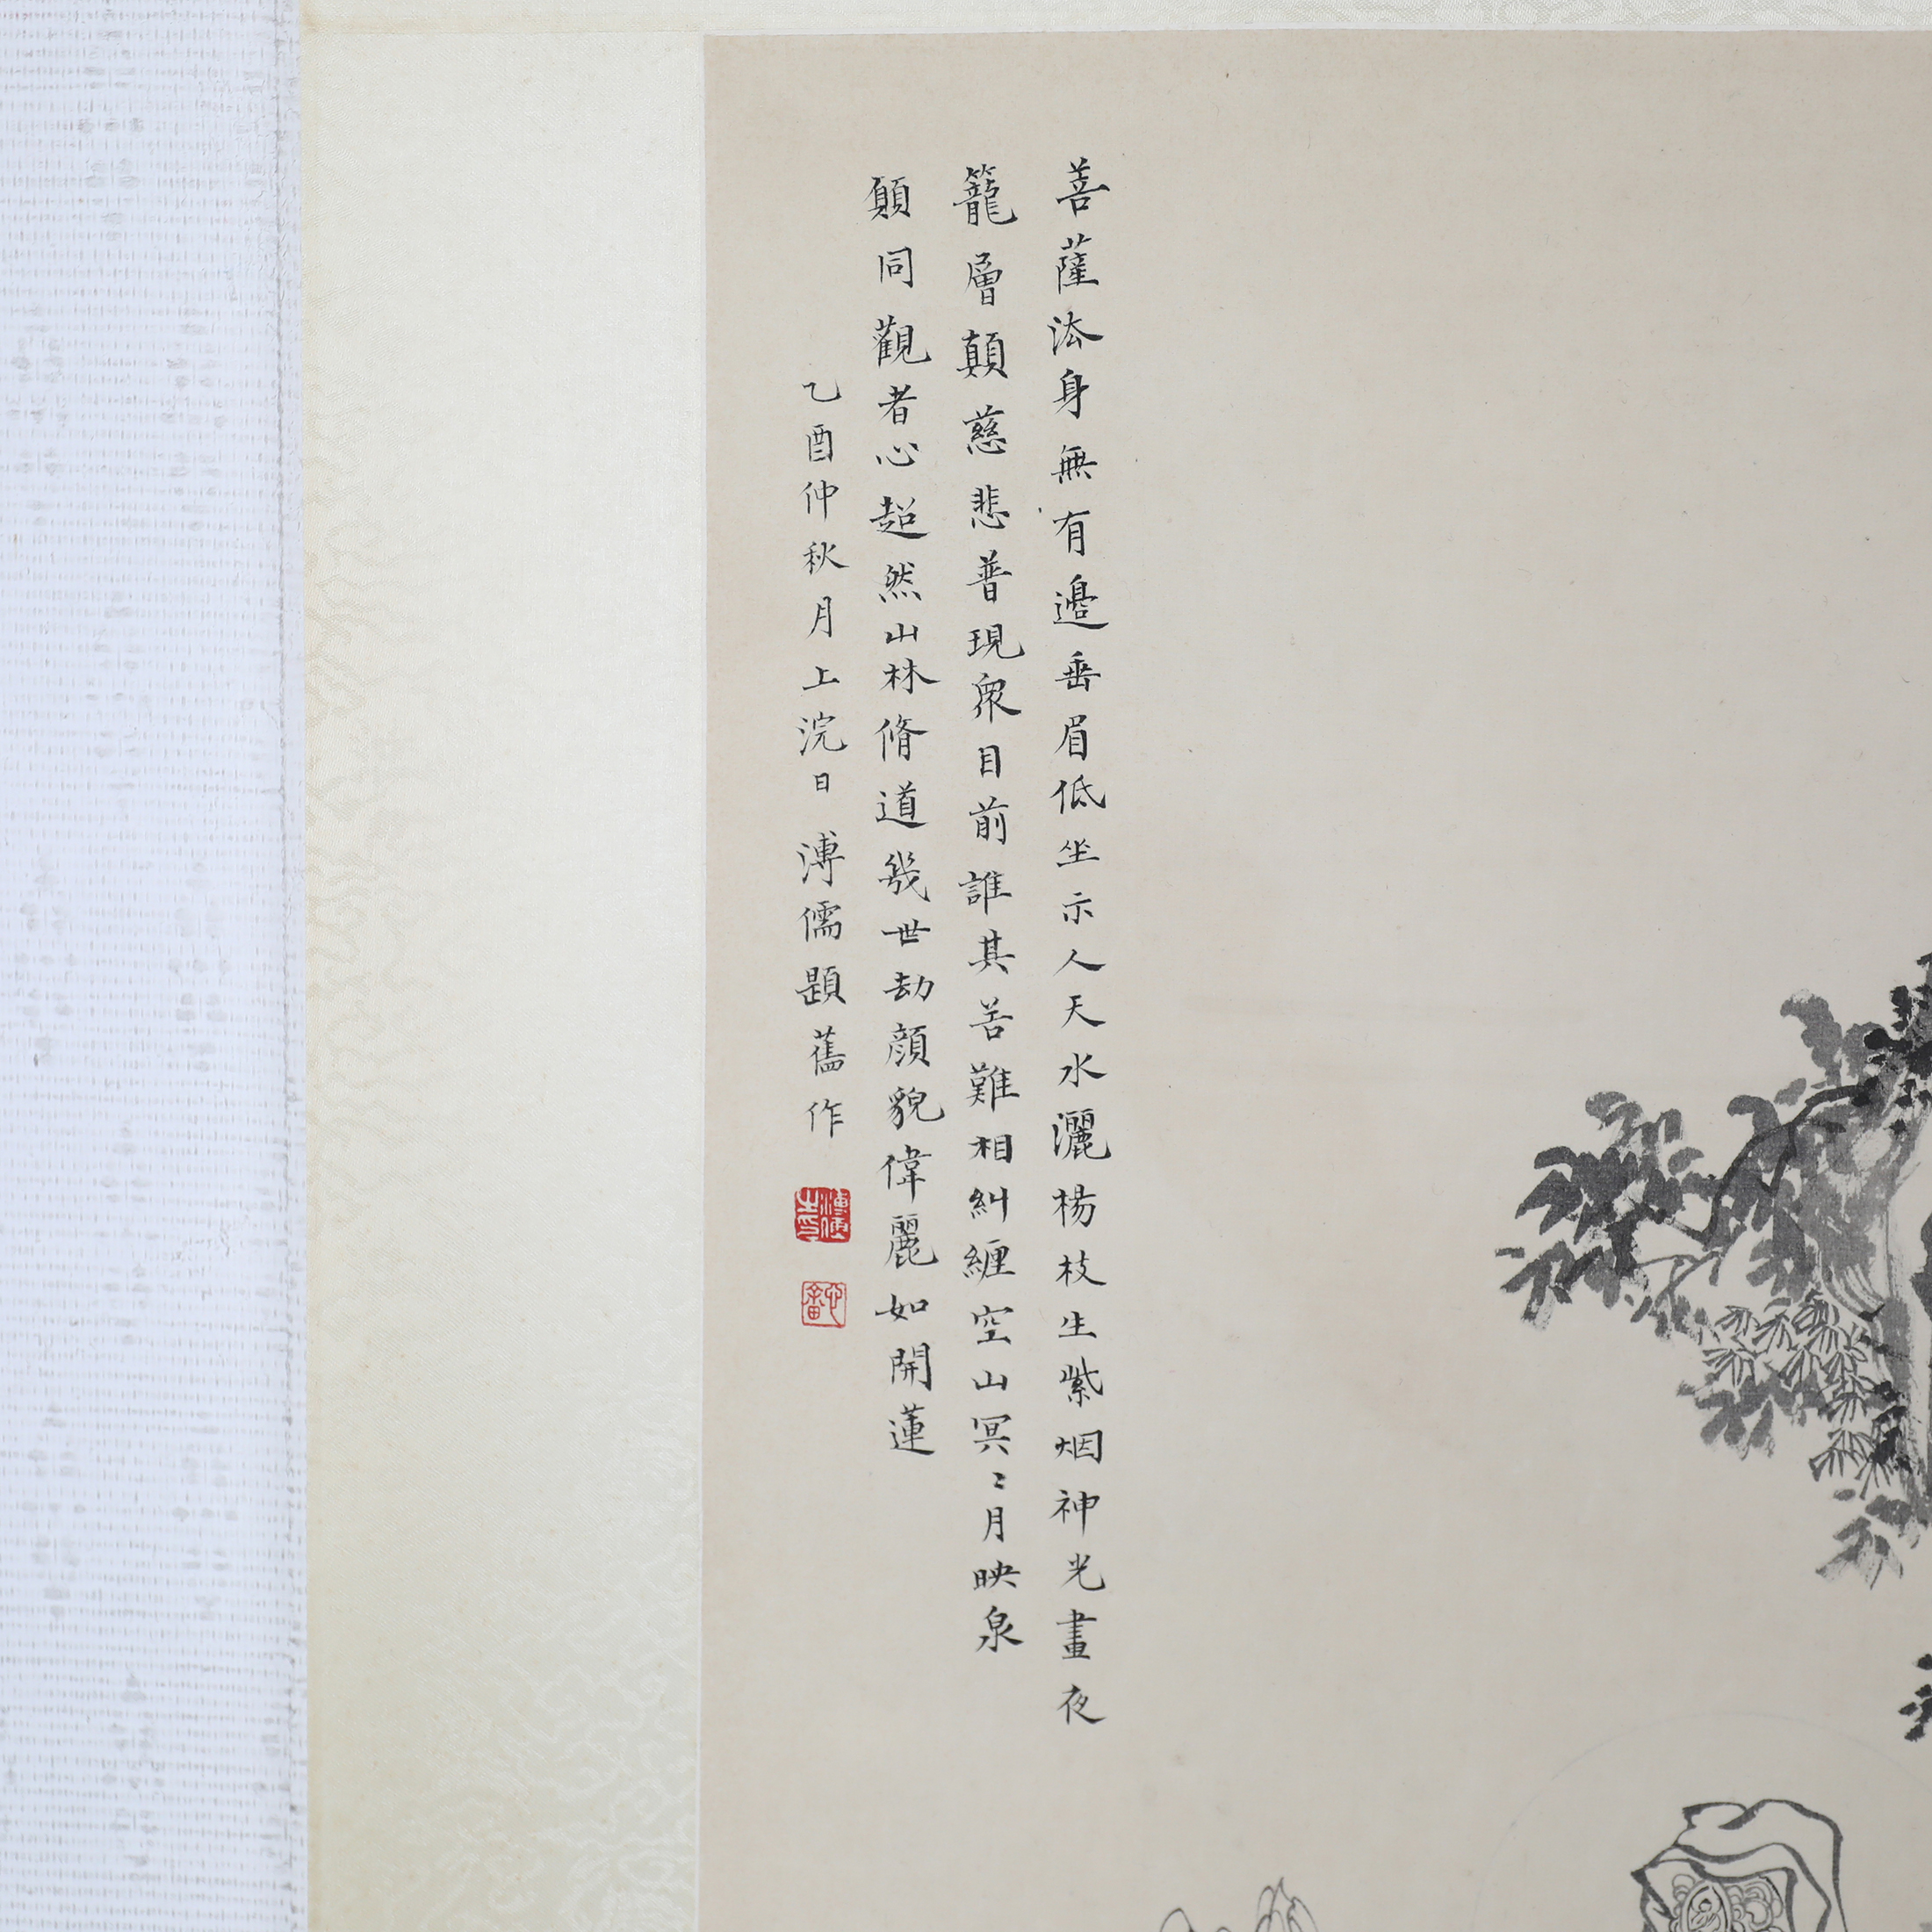 菩薩法身無有邊垂眉低坐示人天水灑楊枝生紫烟神光晝夜
籠層顛慈悲普現眾目前誰其苦難相糾纏空山冥〻月映泉
願同觀者心超然山林脩道幾世劫顔貌偉麗如開蓮
乙酉仲秋月上浣日溥儒題舊作
溥儒之印
心畬